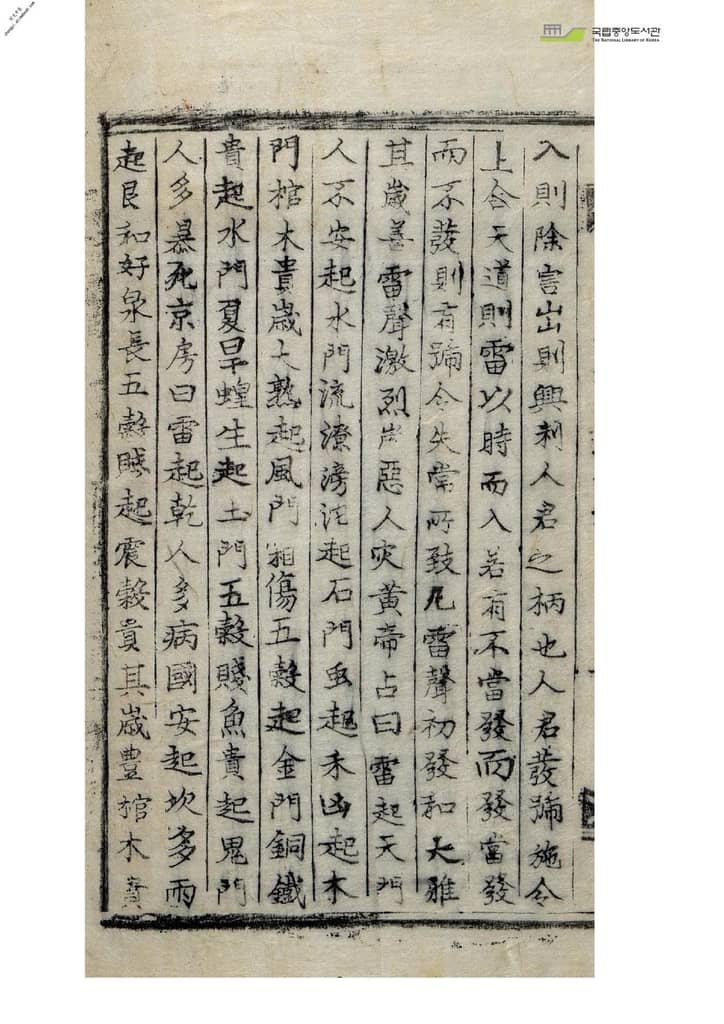 국립중앙도서관
THE NATIONAL LIBRARY OF KOREA
入則除害出則興利人君之柄也人君發號施令
上合天道則雷以時而入若有不當發而發當發
而不發則有號令失當所致凡雷聲初發和大雅
其歲善雷聲激烈歲惡人灾黃帝占曰雷起天門
人不安起水門流潦滂沱起石門虫起禾凶起木
門棺木貴歲大熟起風門霜傷五穀起金門銅鐵
貴起水門夏旱蝗生起土門五穀賤魚貴起鬼門
人多暴死京房曰雷起乾人多病國安起坎多雨
起艮和好泉長五穀賤起震穀貴其歲豊棺木貴